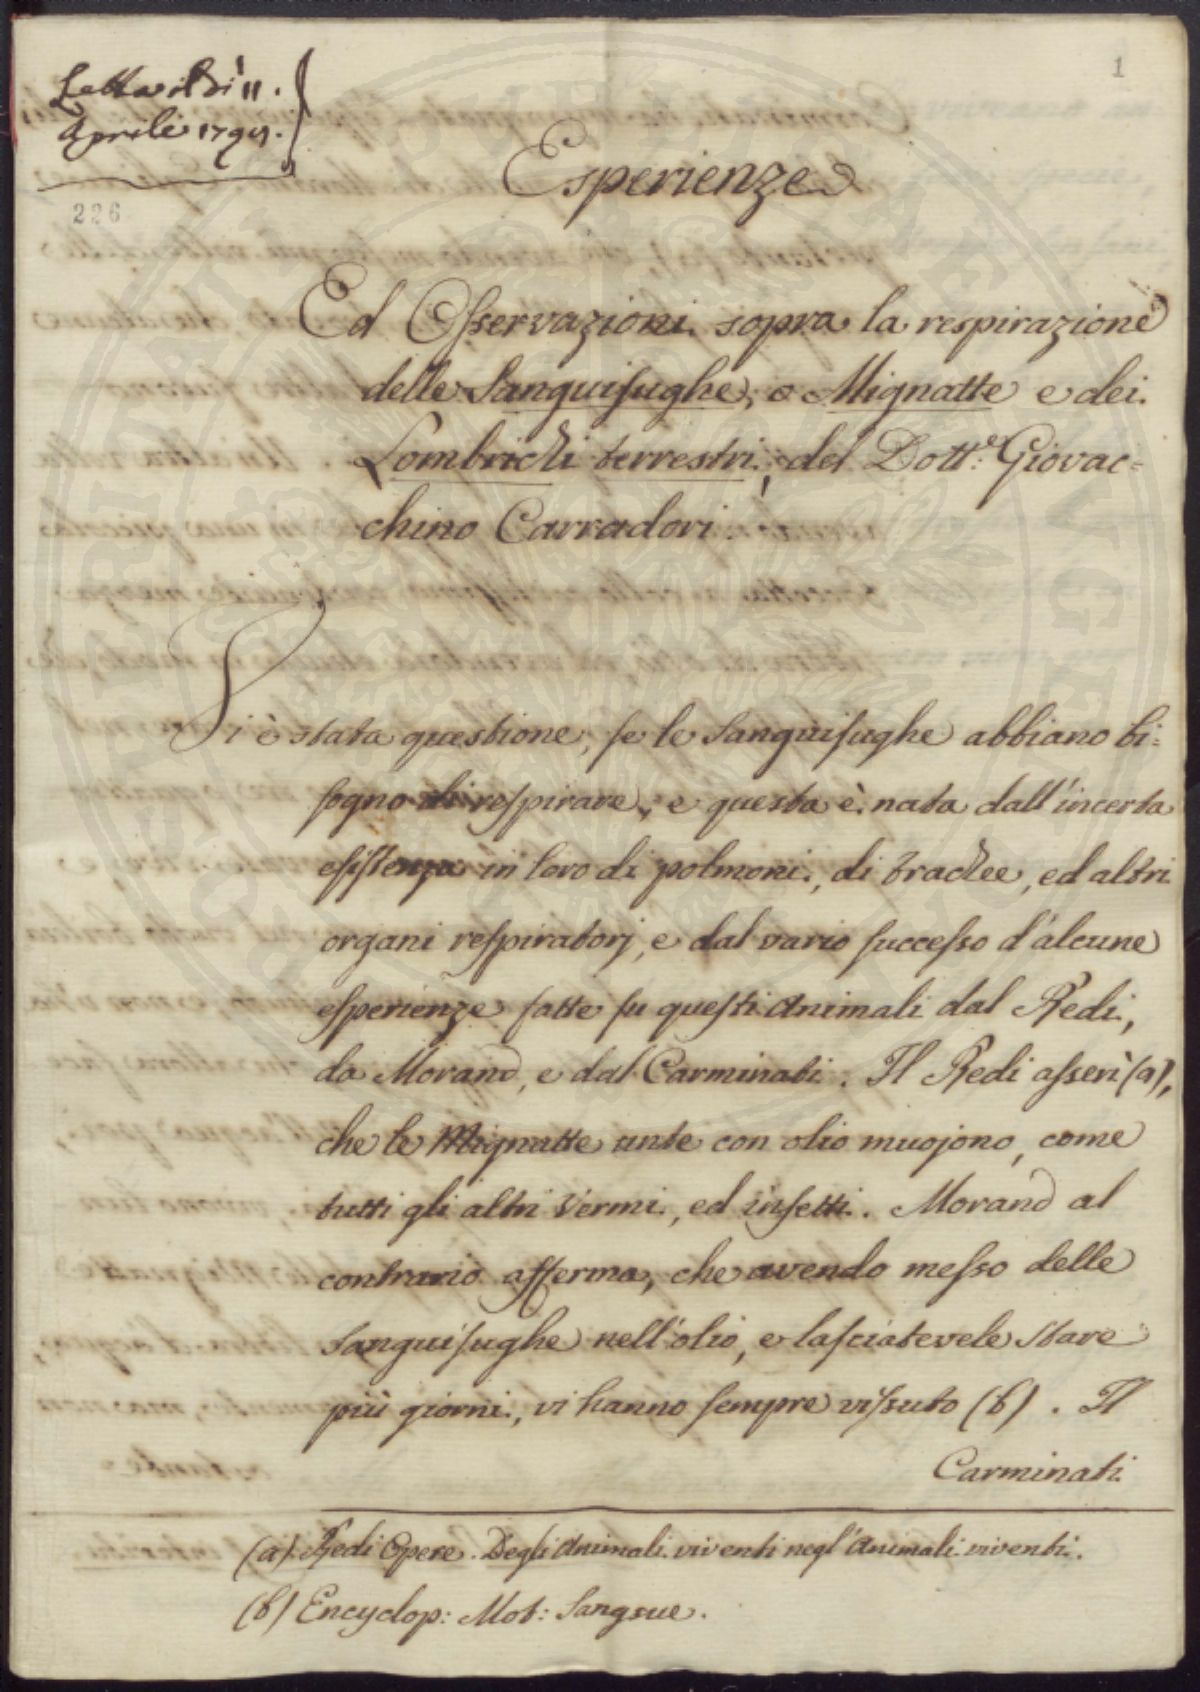 1
Letta il dì 11.
Aprile 179
226
Esperienze
Ed Osservazioni sopra la respirazione
delle Sanguisughe, o Mignatte e dei
Lombrichi terrestri, del Dott.e Giovac=
chino Carradori.
Si è stata questione, se le Sanguisughe abbiano bi=
sogno di respirare, e questa è nata dall'incerta
esistenza in loro di polmoni, di trachee, ed altri
organi respiratorj, e dal vario successo d'alcune
esperienze fatte su questi Animali dal Redi,
da Morand, e dal Carminati. Il Redi asserì (a),
che le Mignatte unte con olio muojono, come
tutti gli altri Vermi, ed insetti. Morand al
contrario afferma, che avendo messo delle
Sanguisughe nell'olio, e lasciatevele stare
più giorni, vi hanno sempre vissuto (b). Il
Carminati
(a) Redi Opere. Degli Animali viventi negl'Animali viventi.
(b) Encyclop: Mot: Sangsue.